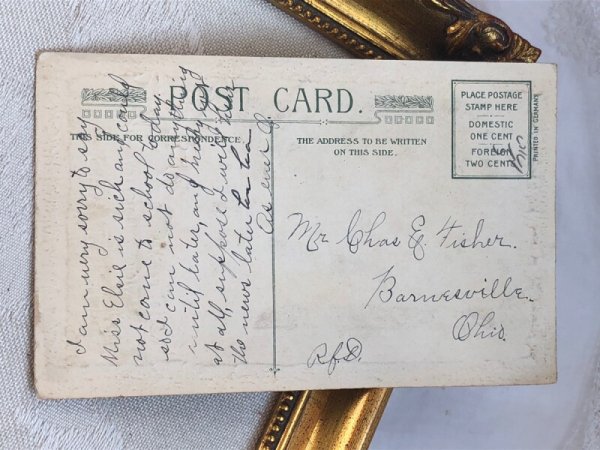 POST CARD.
THIS SIDE FOR CORRESPONDENCE
THE ADDRESS TO BE WRITTEN
ON THIS SIDE.
PLACE POSTAGE
STAMP HERE
DOMESTIC
ONE CENT
FOREIGN
TWO CENTS
PRINTED IN GERMANY
I am very sorry to say
Miss Elsie is sick and could
not come to school today
so I can not do anything
until later, and hardly
at all, suppose I will hear
the news later
As ever
Mr Chas E. Fisher.
Barnesville.
Ohio
R.f.D.